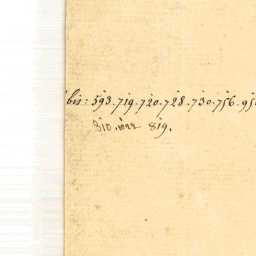 bis: 593. 719. 720. 728. 730. 756. 95
310. 1022 819.